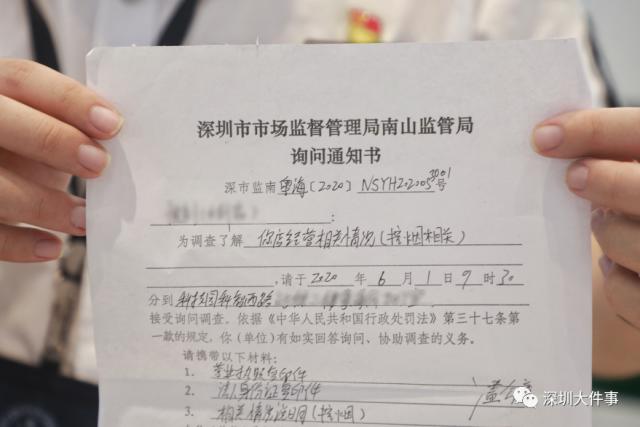 深圳市市场监督管理局南山监管局
询问通知书
深市监南粤海〔2020〕NSYH2020053001号
:
为调查了解 你店经营相关情况(控烟相关)
,请于 2020 年 6 月 1 日 9 时 30
分到 科技园科苑西路
接受询问调查。依据《中华人民共和国行政处罚法》第三十七条第
一款的规定,你(单位)有如实回答询问、协助调查的义务。
请携带以下材料:
1. 营业执照复印件
2. 法人身份证复印件
3. 相关情况说明(控烟)
深圳大件事